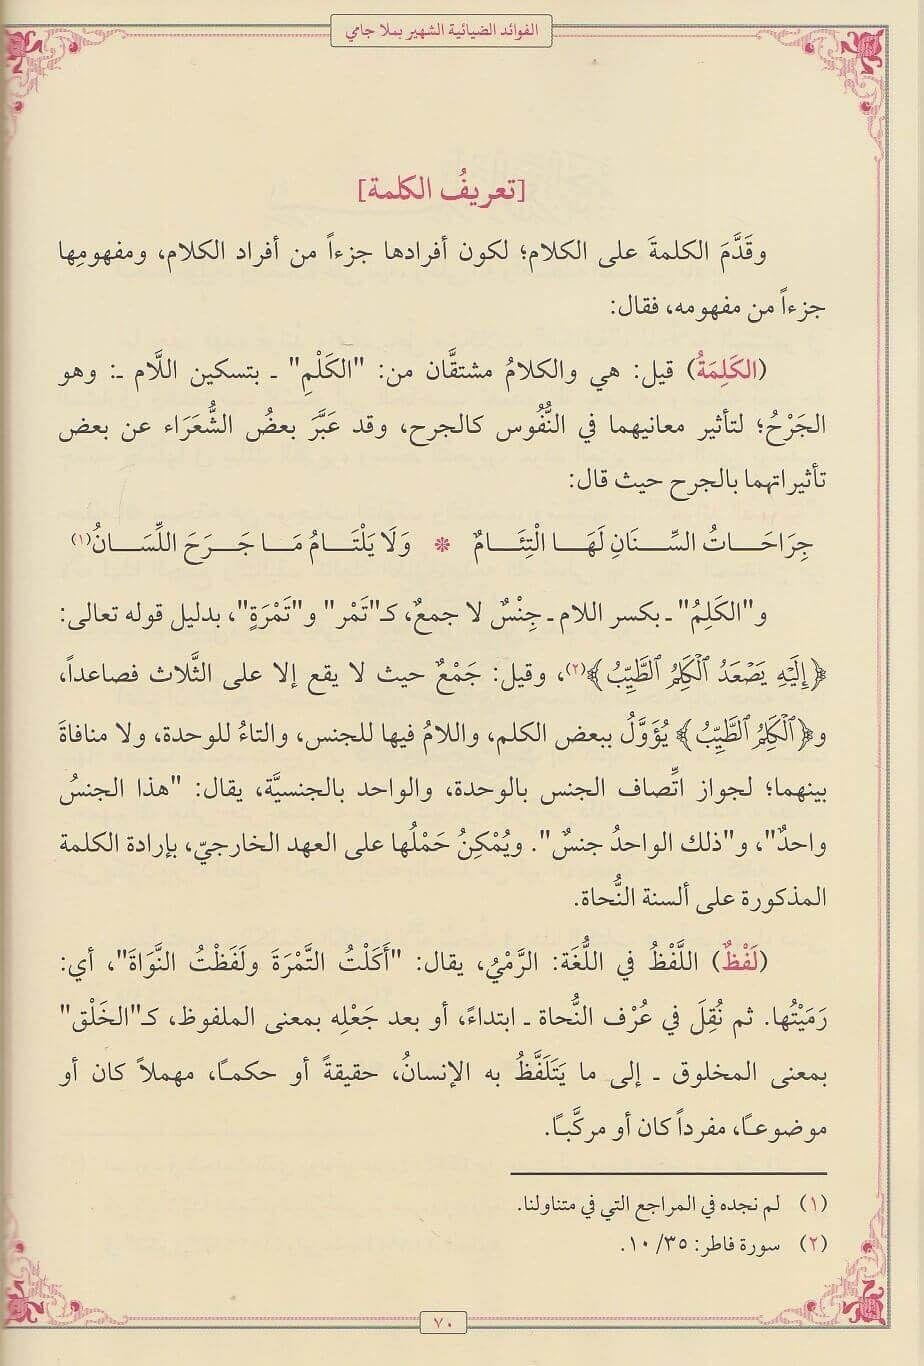 الفوائد الضيائية الشهير بملا جامي
[تعريفُ الكلمة]
وقَدَّمَ الكلمةَ على الكلام؛ لكون أفرادها جزءاً من أفراد الكلام، ومفهومِها
جزءاً من مفهومه، فقال:
(الكَلِمَةُ) قيل: هي والكلامُ مشتقَّان من: "الكَلْمِ" ـ بتسكين اللَّام ـ: وهو
الجَرْحُ؛ لتأثير معانيهما في النُّفُوس كالجرح، وقد عَبَّرَ بعضُ الشُّعَرَاء عن بعض
تأثيراتهما بالجرح حيث قال:
جِرَاحَـــاتُ السِّـــنَانِ لَهَـــا الْتِئَـــامٌ * وَلَا يَلْتَـــامُ مَـــا جَـــرَحَ اللِّسَـــانُ(١)
و"الكَلِمُ" ـ بكسر اللام ـ جِنْسٌ لا جمعٌ، كـ"تَمْر" و"تَمْرَةٍ"، بدليل قوله تعالى:
﴿إِلَيْهِ يَصْعَدُ ٱلْكَلِمُ ٱلطَّيِّبُ﴾(٢)، وقيل: جَمْعٌ حيث لا يقع إلا على الثَّلاث فصاعداً،
و﴿ٱلْكَلِمُ ٱلطَّيِّبُ﴾ يُؤَوَّلُ ببعض الكلم، واللامُ فيها للجنس، والتاءُ للوحدة، ولا منافاةَ
بينهما؛ لجواز اتِّصاف الجنس بالوحدة، والواحد بالجنسيَّة، يقال: "هذا الجنسُ
واحدٌ"، و"ذلك الواحدُ جنسٌ". ويُمْكِنُ حَمْلُها على العهد الخارجيّ، بإرادة الكلمة
المذكورة على ألسنة النُّحاة.
(لَفْظٌ) اللَّفْظُ في اللُّغَة: الرَّمْيُ، يقال: "أَكَلْتُ التَّمْرَةَ ولَفَظْتُ النَّوَاةَ"، أي:
رَمَيْتُها. ثم نُقِلَ في عُرْف النُّحاة ـ ابتداءً، أو بعد جَعْلِه بمعنى الملفوظ، كـ"الخَلْق"
بمعنى المخلوق ـ إلى ما يَتَلَفَّظُ به الإنسانُ، حقيقةً أو حكمـاً، مهملاً كان أو
موضوعـاً، مفرداً كان أو مركَّبـاً.
(١) لم نجده في المراجع التي في متناولنا.
(٢) سورة فاطر: ٣٥/ ١٠.
٧٠